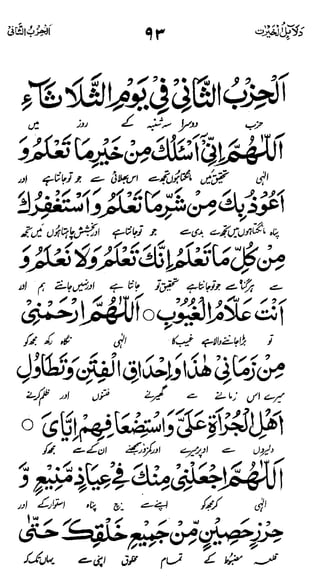 دلائل الخیرات ۹۳ الحزب الثانی
اَلْحِزْبُ الثَّانِیْ فِیْ یَوْمِ الثَّلَاثَاءِ
حزب دوسرا سہ شنبہ کے روز میں
اَللّٰهُمَّ اِنِّیْ اَسْئَلُكَ مِنْ خَیْرِ مَا تَعْلَمُ وَ
الٰہی تحقیق میں مانگتا ہوں تجھ سے اس بھلائی سے جو تو جانتا ہے اور
اَعُوْذُ بِكَ مِنْ شَرِّ مَا تَعْلَمُ وَ اَسْتَغْفِرُكَ
پناہ مانگتا ہوں میں تجھ سے بدی سے جو تو جانتا ہے اور بخشش چاہتا ہوں میں تجھ
مِنْ كُلِّ مَا تَعْلَمُ اِنَّكَ تَعْلَمُ وَلَا نَعْلَمُ وَ
سے ہر گناہ سے جو تو جانتا ہے تحقیق تو جانتا ہے اور نہیں جانتے ہم اور
اَنْتَ عَلَّامُ الْغُیُوْبِ ○ اَللّٰهُمَّ ارْحَمْنِیْ
تو بڑا جاننے والا ہے غیب کا الٰہی نگاہ رکھ مجھ کو
مِنْ زَمَانِیْ هٰذَا وَ اِحْدَاقِ الْفِتَنِ وَ تَطَاوُلِ
میرے اس زمانے سے گھیرنے فتنوں اور ظلم کرنے
اَهْلِ الْجُرْاَةِ عَلَیَّ وَ اسْتِضْعَافِهِمْ اِیَّایَ ○
دلیروں سے اوپر میرے اور کمزور سمجھنے ان کے سے مجھ کو
اَللّٰهُمَّ اجْعَلْنِیْ مِنْكَ فِیْ عِیَاذٍ مَّنِیْعٍ وَّ
الٰہی کر مجھ کو اپنے سے بیچ پناہ استوار کے اور
حِرْزٍ حَصِیْنٍ مِّنْ جَمِیْعِ خَلْقِكَ حَتّٰی
قلعہ مضبوط کے تمام مخلوق اپنی سے یہاں تک کہ